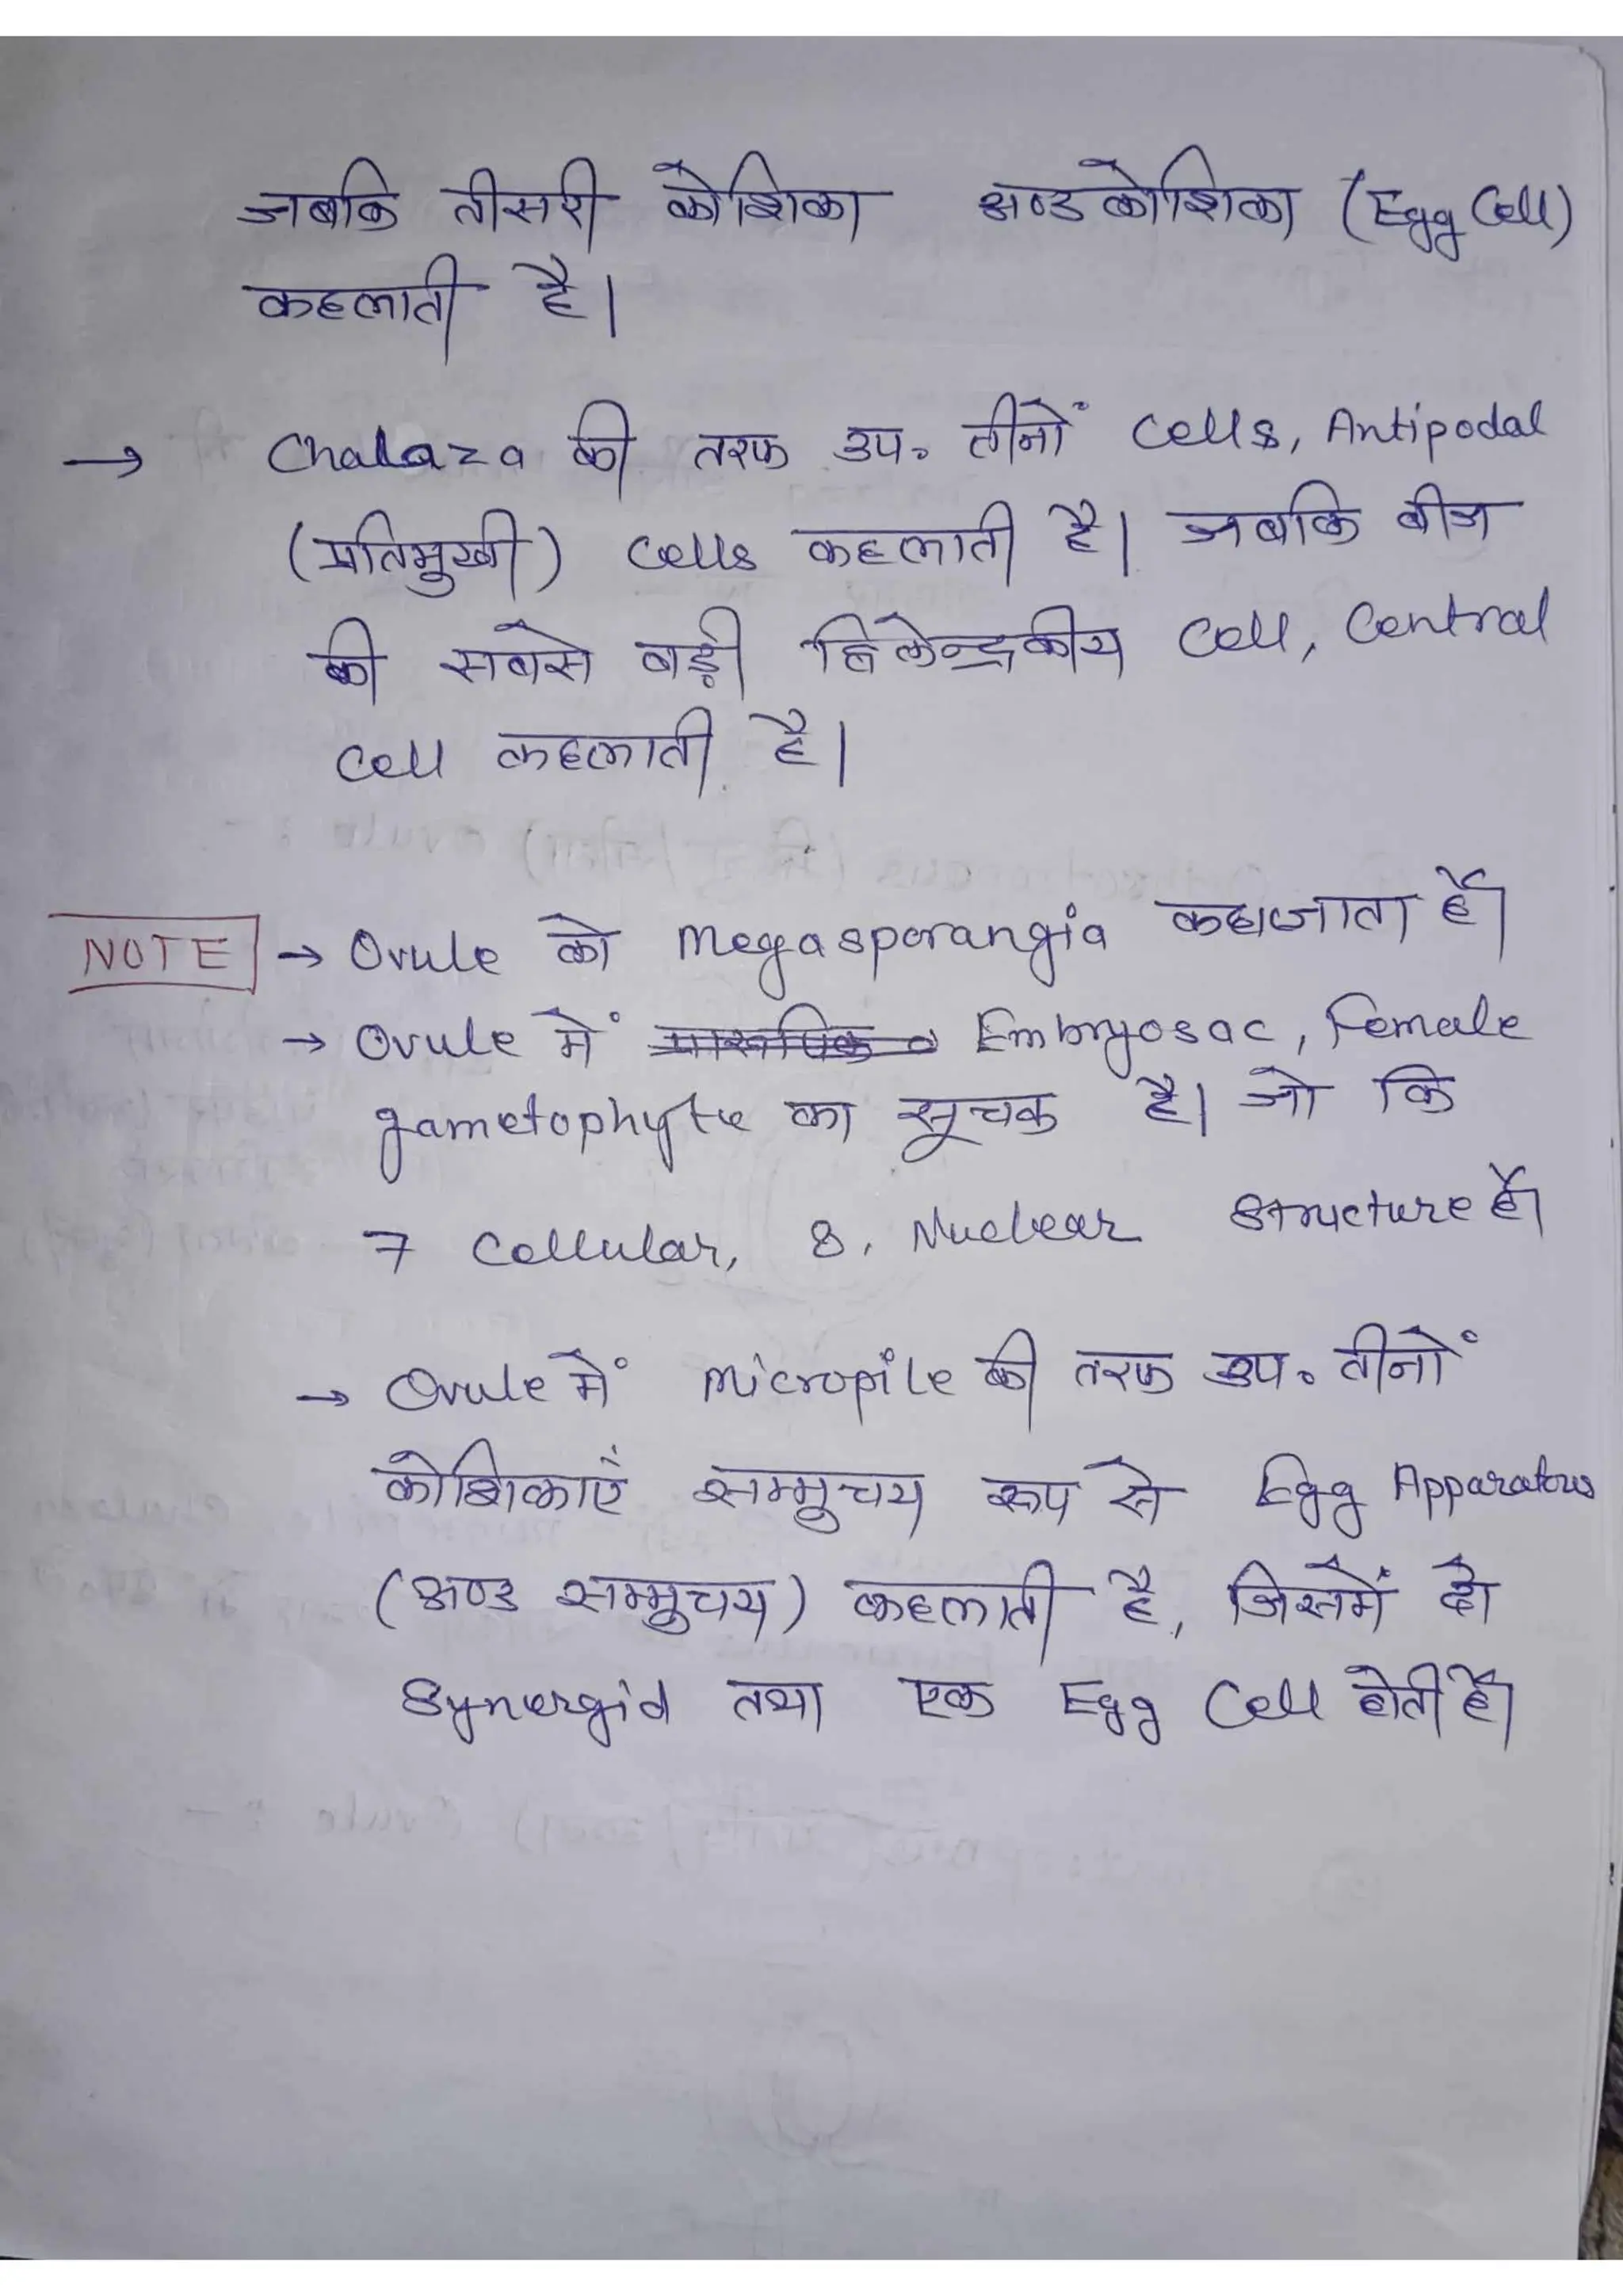 जबकि तीसरी कोशिका अण्डकोशिका (Egg Cell)
कहलाती है।
→ Chalaza की तरफ उप. तीनों Cells, Antipodal
(प्रतिमुखी) Cells कहलाती है। जबकि बीज
की सबसे बड़ी द्विकेन्द्रकीय Cell, Central
Cell कहलाती है।
NOTE → Ovule को Megasporangia कहाजाता है।
→ Ovule में Embryosac, Female
gametophyte का सूचक है। जो कि
7 Cellular, 8, Nuclear Structure है।
→ Ovule में Micropile की तरफ उप. तीनों
कोशिकाएं सम्मुचय रूप से Egg Apparatus
(अण्ड सम्मुचय) कहलाती है, जिसमें दो
Synergid तथा एक Egg Cell होती है।